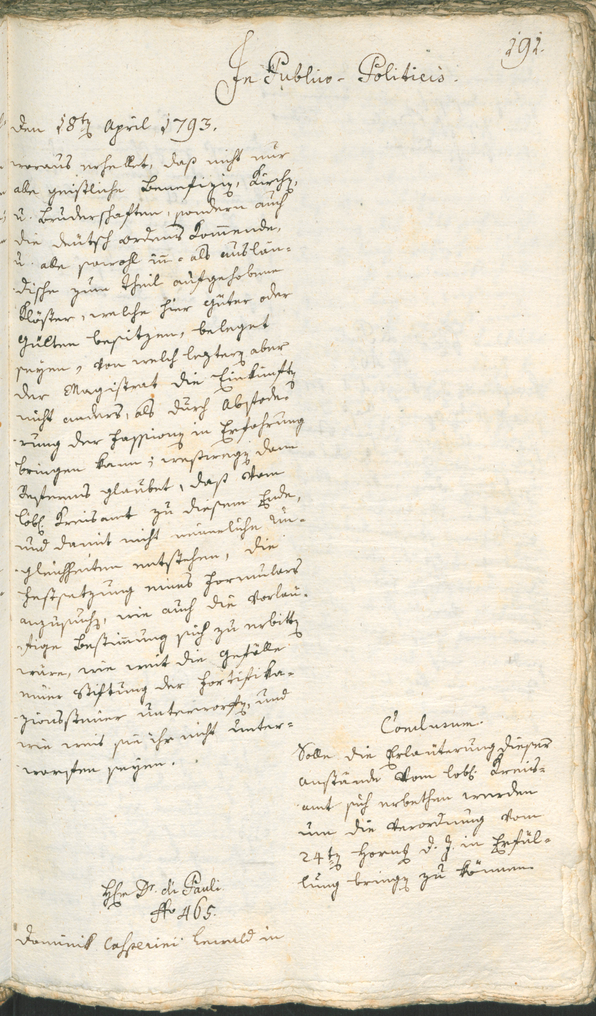 191.
In Publico-Politicis.
den 18t April 1793.
woraus erhellet, daß nicht nur
alle geistliche Benefizien, Kirchen,
u. Bruderschaften, sondern auch
die deutsch ordens Commende,
u. alle sowohl in- als auslän-
dische zum theil aufgehobene
Klöster, welche hier güter oder
Gülten besitzen, beleget
seyen, von welch leztern aber
der Magistrat die Einkünften
nicht anders, als durch Abforde-
rung der Fassionen in Erfahrung
bringen kann; weßwegen dann
Referens glaubet, daß vom
löbl. Kreisamt zu diesem Ende,
und damit nicht neuerliche Un-
gleichheiten entstehen, die
Festsetzung eines Formulars
anzusuchen, wie auch die vorläu-
fige Bestimmung sich zu erbitten
wäre, wie weit die Gefälle
einer Stiftung der Fortifika-
zionssteuer unterworfen, und
wie weit sie ihr nicht unter-
worfen seyen.
Conclusum.
Solle die Erläuterung dieser
anstände vom löbl. Kreis-
amt sich erbethen werden
um die Verordnung vom
24ten Hornung d. J. in Erfül-
lung bringen zu können
Hr Dr. di Pauli
No 465.
Dominik Casperini in